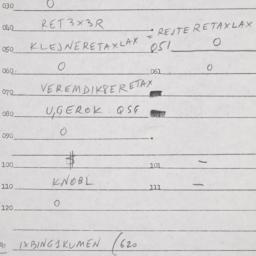 030 0
RET3X3R
040 = REJTERETAXLAX
KLEJNERETAXLAX 051 0
050
060 0 061 0
VEREMDIKSERETAX
070
U,GEROK QSG
080
0
090
$
100 101 –
KNOBL
110 111 –
0
120
IXBING1KUMEN (620